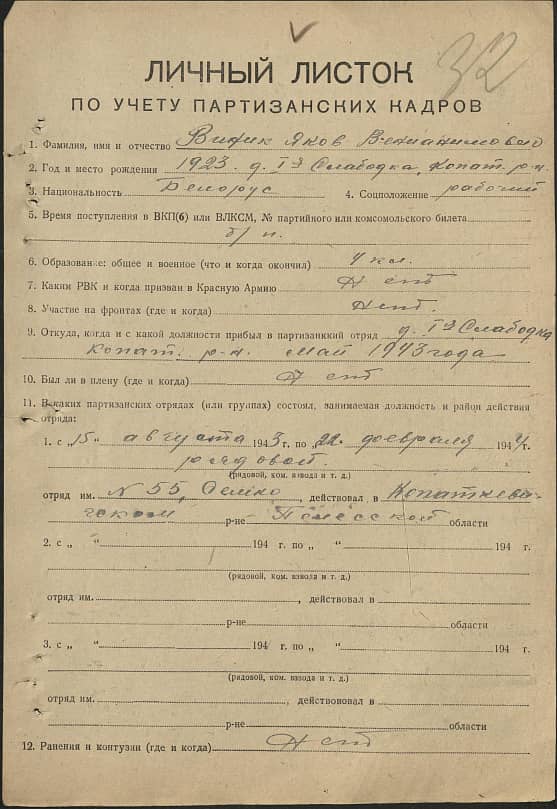 32
ЛИЧНЫЙ ЛИСТОК
ПО УЧЕТУ ПАРТИЗАНСКИХ КАДРОВ
1. Фамилия, имя и отчество Яков
2. Год и место рождения 1923 д. Слабодка, Копат. р-н.
3. Национальность Белорус 4. Соцположение рабочий
5. Время поступления в ВКП(б) или ВЛКСМ, № партийного или комсомольского билета
б/п.
6. Образование: общее и военное (что и когда окончил) 4 кл.
7. Каким РВК и когда призван в Красную Армию Нет
8. Участие на фронтах (где и когда) Нет.
9. Откуда, когда и с какой должности прибыл в партизанский отряд д. Слабодка
Копат. р-н. май 1943 года
10. Был ли в плену (где и когда) Нет
11. В каких партизанских отрядах (или группах) состоял, занимаемая должность и район действия
отряда:
1. с „15" августа 1943 г. по „22" февраля 1944 г.
рядовой.
(рядовой, ком. взвода и т. д.)
отряд им. № 55, действовал в Копаткеви-
чском р-не Полесской области
2. с „ "194 г. по „ "194 г.
(рядовой, ком. взвода и т. д.)
отряд им., действовал в
р-не области
3. с „ "194 г. по „ "194 г.
(рядовой, ком. взвода и т. д.)
отряд им., действововал в
р-не области
12. Ранения и контузии (где и когда) Нет